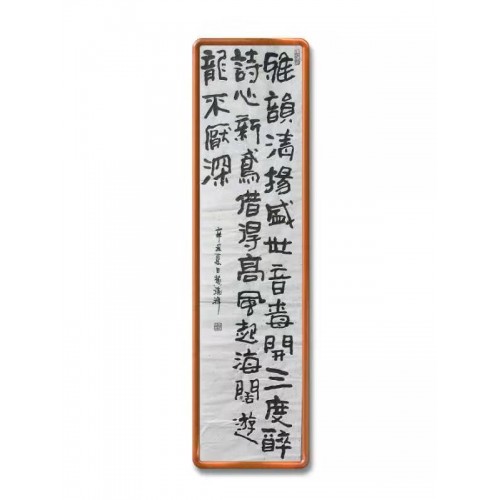 雅韻清揚盛世音卷開三度醉
詩心新鳶借得高風起海闊遊
龍不厭深
辛丑夏日